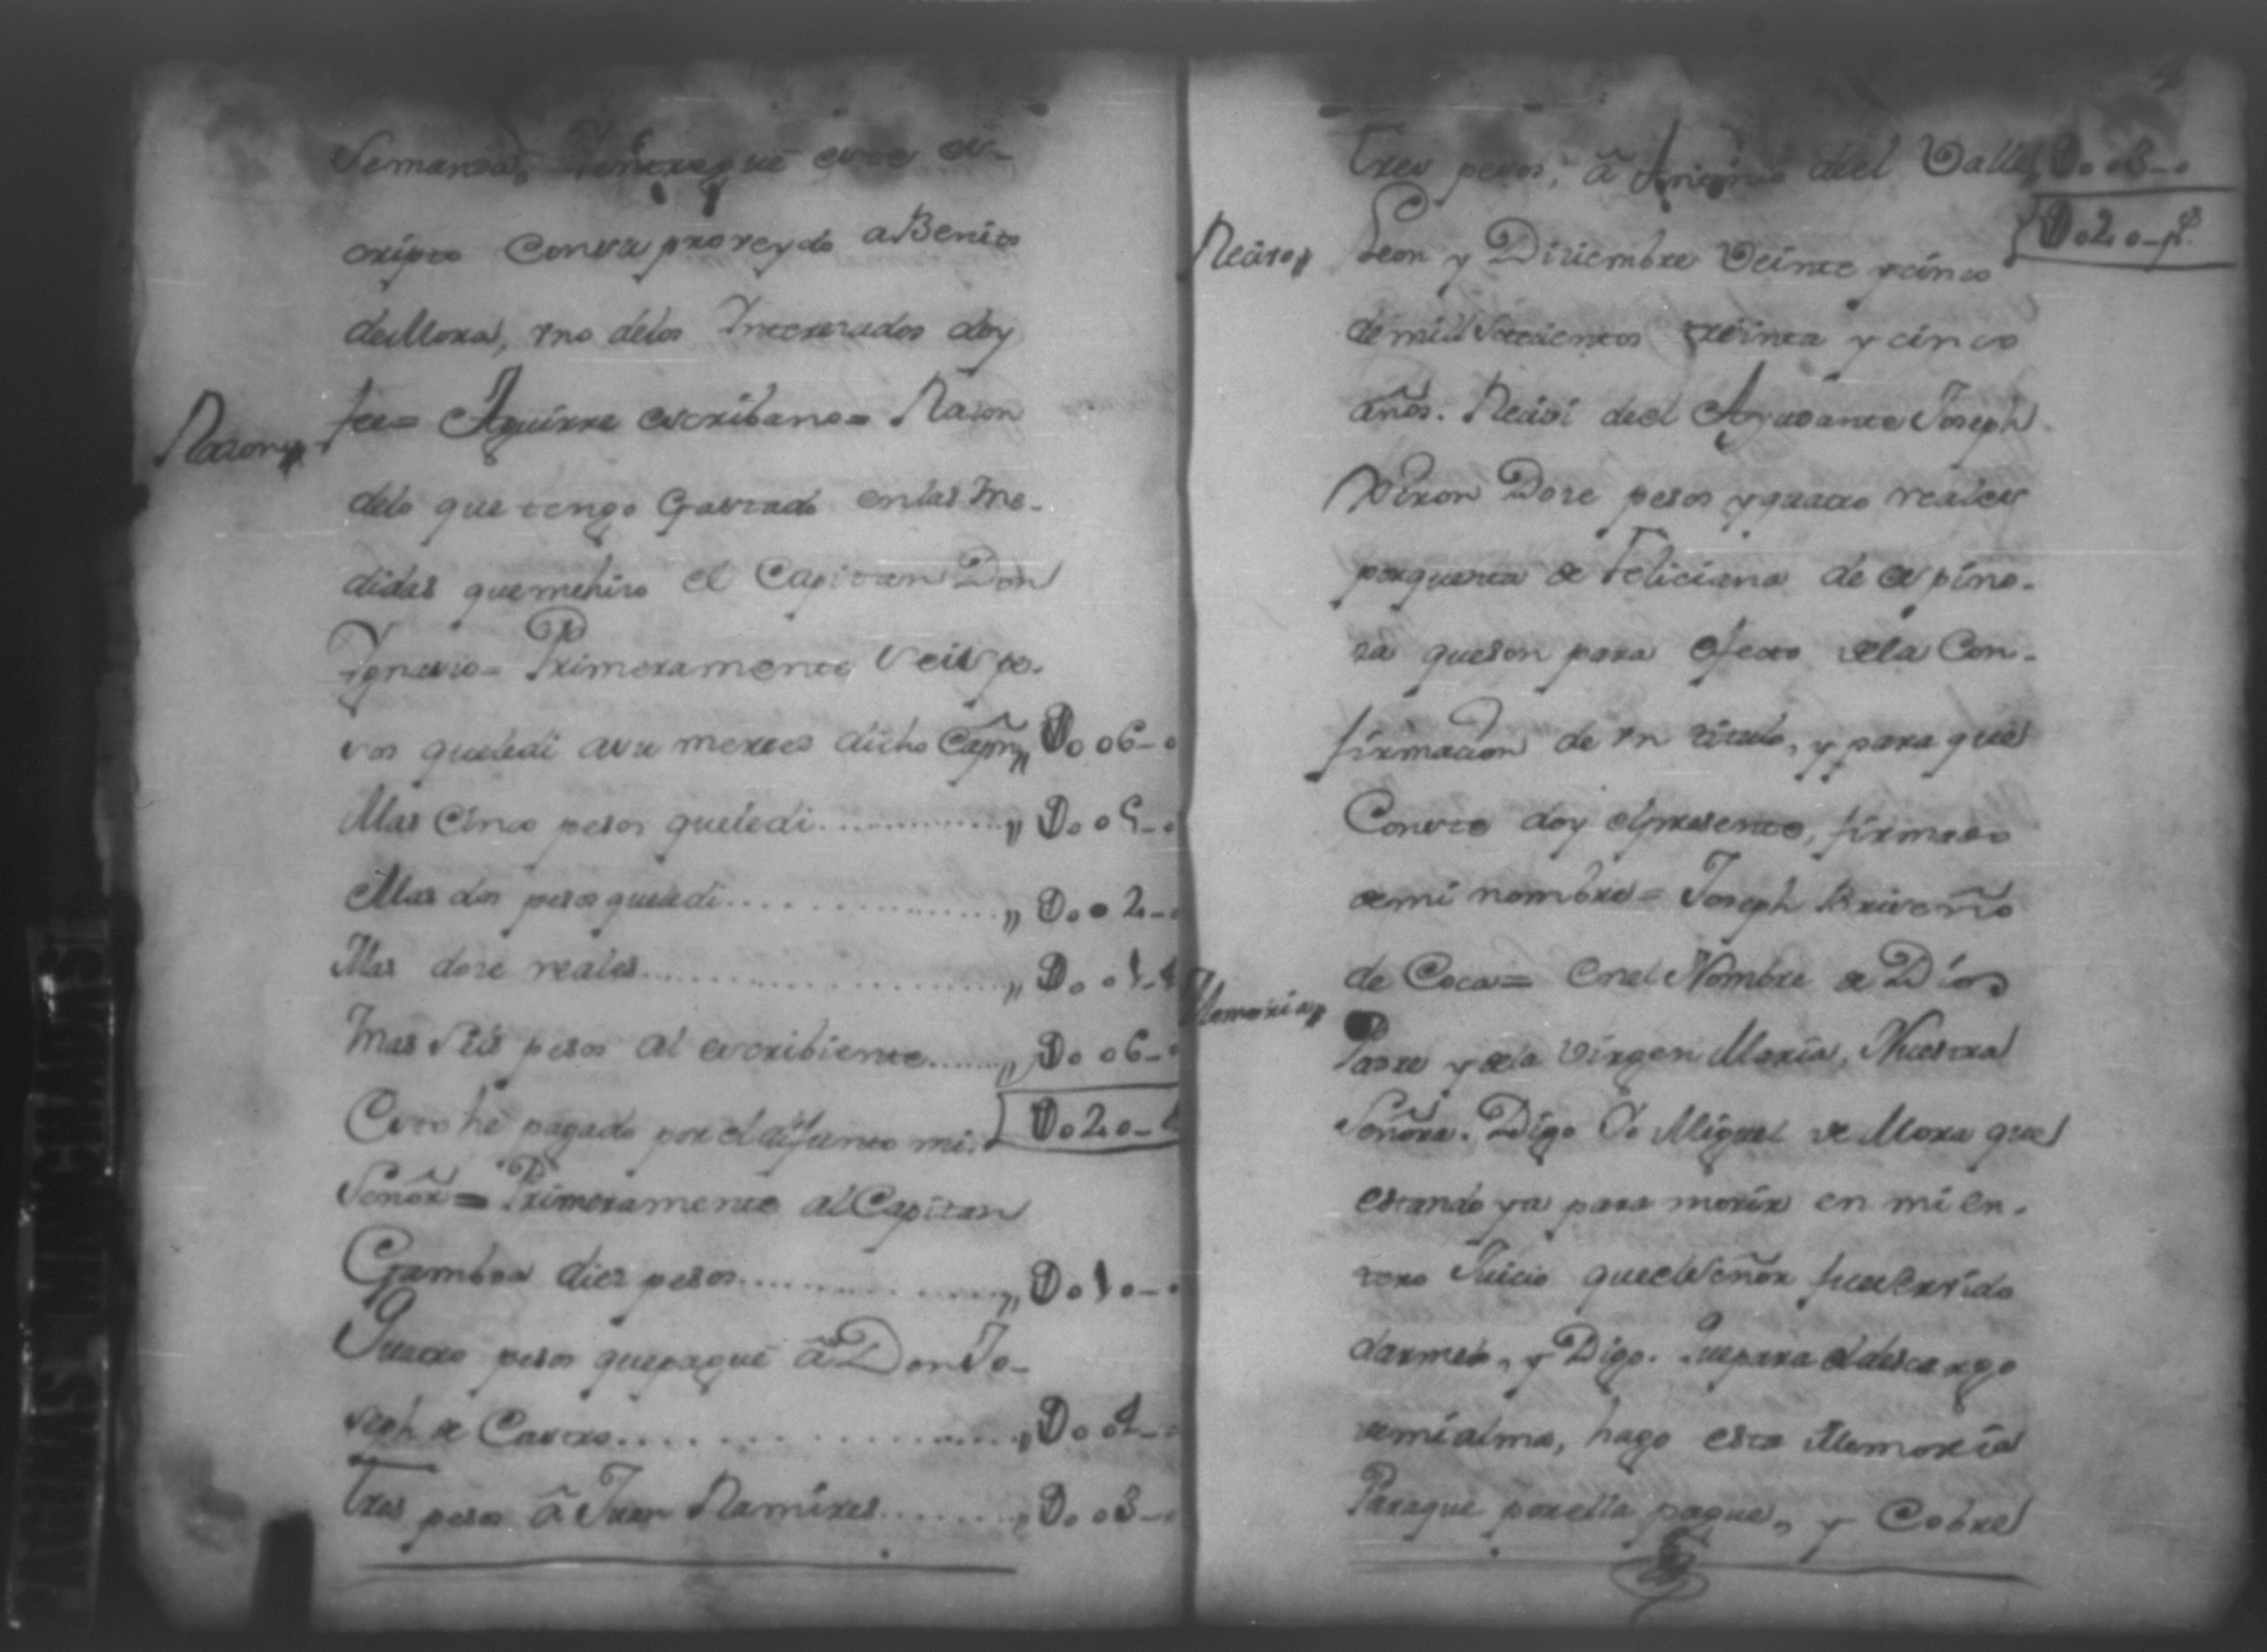 Semanas, Yentregué este es-
cripto Consu proveydo a Benito
de Mora, vno delos Interezados doy
Razon,,
fee= Aguirre escribano= Razon
delo que tengo Gastado enlas Me-
didas quemehizo el Capitan Don
Ygnasio= Primeramente Seis pe-
sos queledi asu merced dicho Capn,, D.o06-0
Mas Cinco pesos queledi..............,, D.o05-0
Mas dos pesos queledi..............,, D.o02-0
Mas doze reales..............,, D.o01-4
Mas Seis pesos al escribiente.......,, D.o06-0
Esto hé pagado por el difunto mi D.o20-4
Señor= Primeramente al Capitan
Gamboa diez pesos..............,, D.o10-0
Quatro pesos quepagué â Don Jo-
seph de Castro..............,, D.o04-0
Tres pesos â Juan Ramires.......,, D.o03-0
Tres pesos, â Antonio del Valle,, D.o03-0
D.o20-ps
Reciuo,,
Leon y Diziembre Veinte y cinco
de mill Setecientos treinta y cinco
años. Reciui del Ayudante Joseph
Xiron Doze pesos y quatro reales
porquenta de Feliciana de espino-
za queson para efecto dela Con-
firmacion de vn titulo, y para que
Conste doy elpresente, firmado
demi nombre= Joseph Briseño
de Coca= Enel Nombre de Dios
Memoria,,
Padre y dela Virgen Maria, Nuestra
Señora. Digo Yo Miguel de Mora que
estando ya para morir en mi en-
tero Juicio queelSeñor fueservido
darmelo, y Digo. Quepara eldescargo
demialma, hago esta Memoria
Paraque porella pague, y Cobre